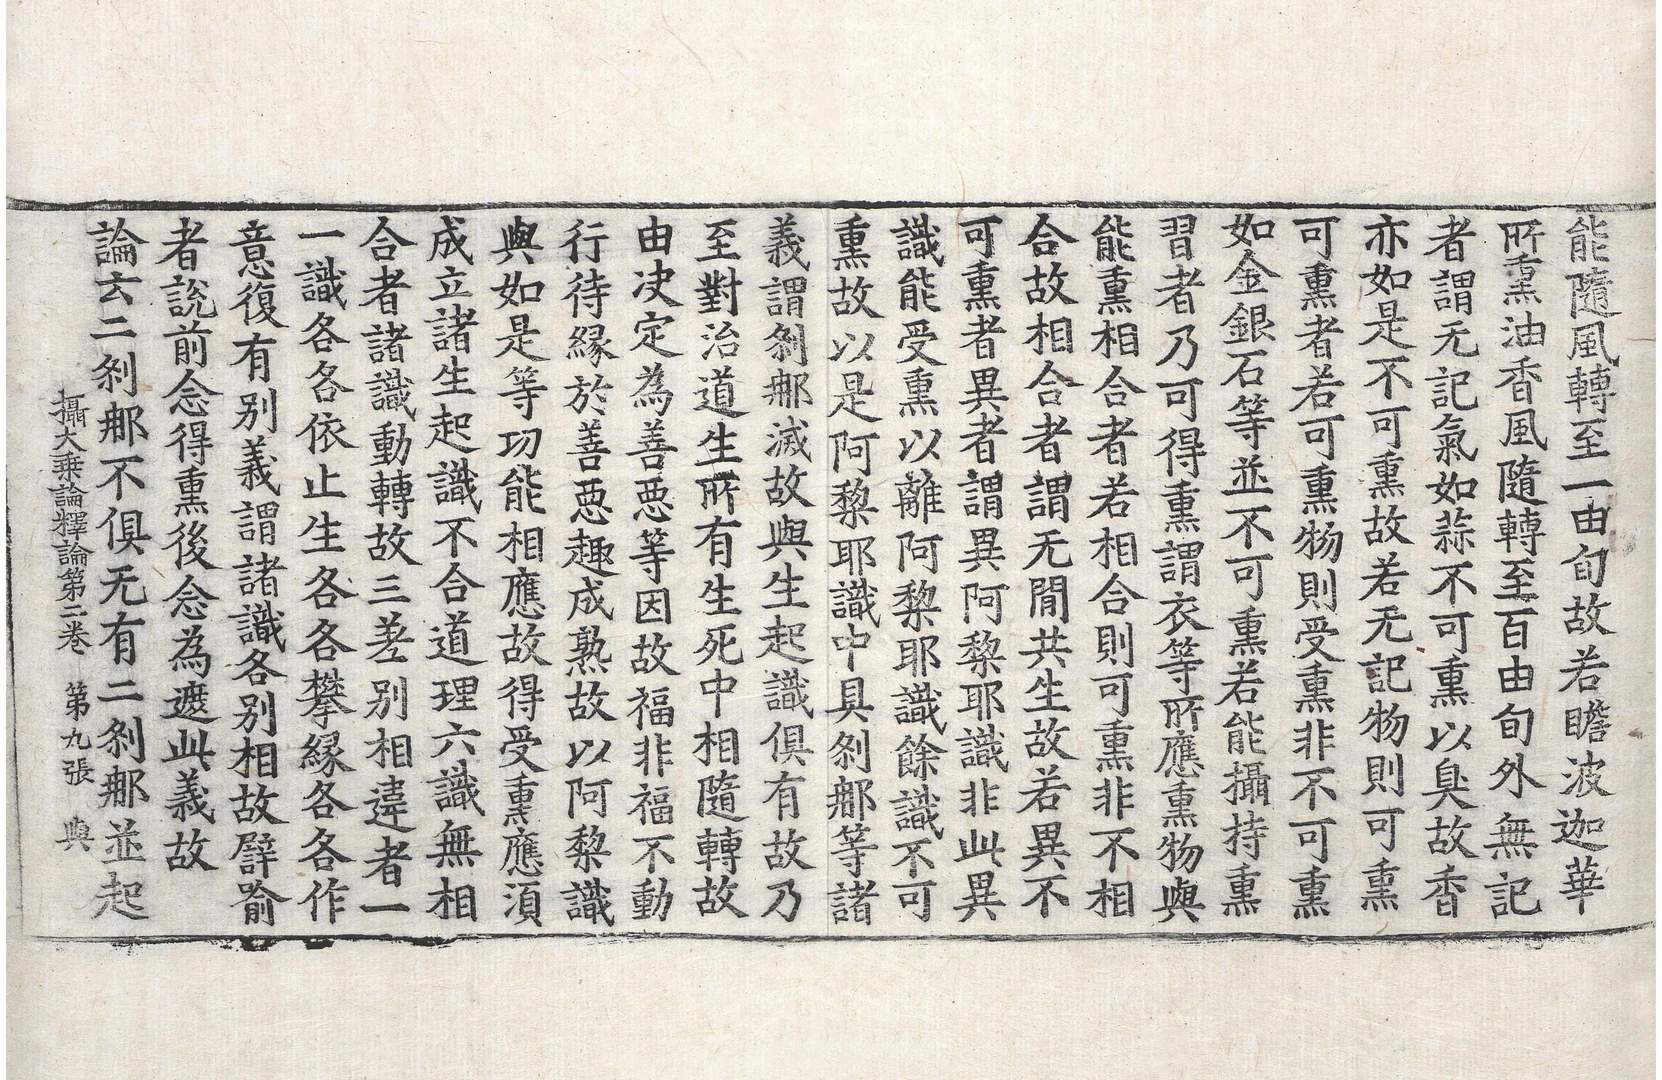 能隨風轉至一由旬故若瞻波迦華
所熏油香風隨轉至百由旬外無記
者謂无記氣如蒜不可熏以臭故香
亦如是不可熏故若无記物則可熏
可熏者若可熏物則受熏非不可熏
如金銀石等並不可熏若能攝持熏
習者乃可得熏謂衣等所應熏物與
能熏相合者若相合則可熏非不相
合故相合者謂无閒共生故若異不
可熏者異者謂異阿黎耶識非此異
識能受熏以離阿黎耶識餘識不可
熏故以是阿黎耶識中具剎那等諸
義謂剎那滅故與生起識俱有故乃
至對治道生所有生死中相隨轉故
由決定為善惡等因故福非福不動
行待緣於善惡趣成熟故以阿黎識
與如是等功能相應故得受熏應須
成立諸生起識不合道理六識無相
合者諸識動轉故三差別相違者一
一識各各依止生各各攀緣各各作
意復有別義謂諸識各別相故譬喻
者說前念得熏後念為遮此義故
論云二剎那不俱无有二剎那並起
攝大乘論釋論第二卷 第九張 與